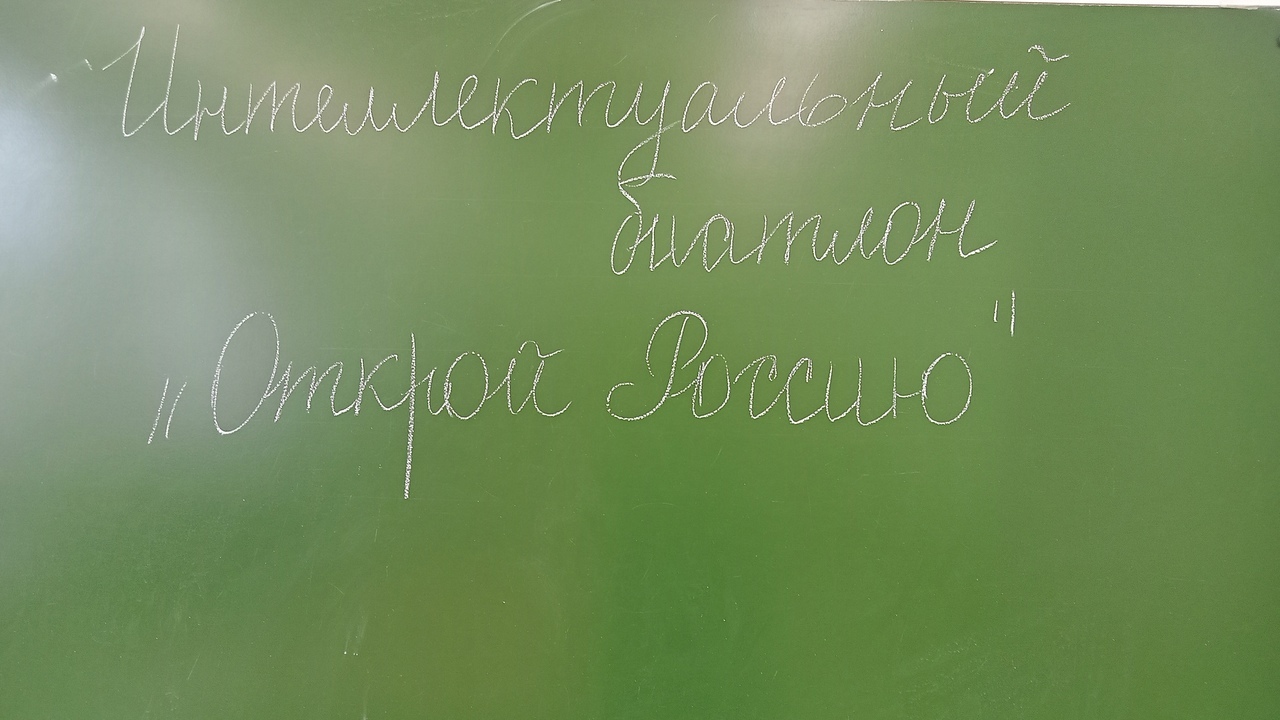 Интеллектуальный
биатлон
„Открой Россию"